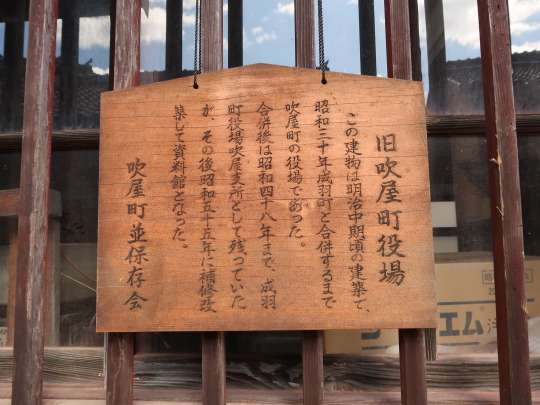 旧吹屋町役場
この建物は明治中期頃の建築で、
昭和三十年成羽町と合併するまで
吹屋町の役場であった。
合併後は昭和四十八年まで、成羽
町役場吹屋支所として残っていた
が、その後昭和五十五年に補修改
築して資料館となった。
吹屋町並保存会
エム